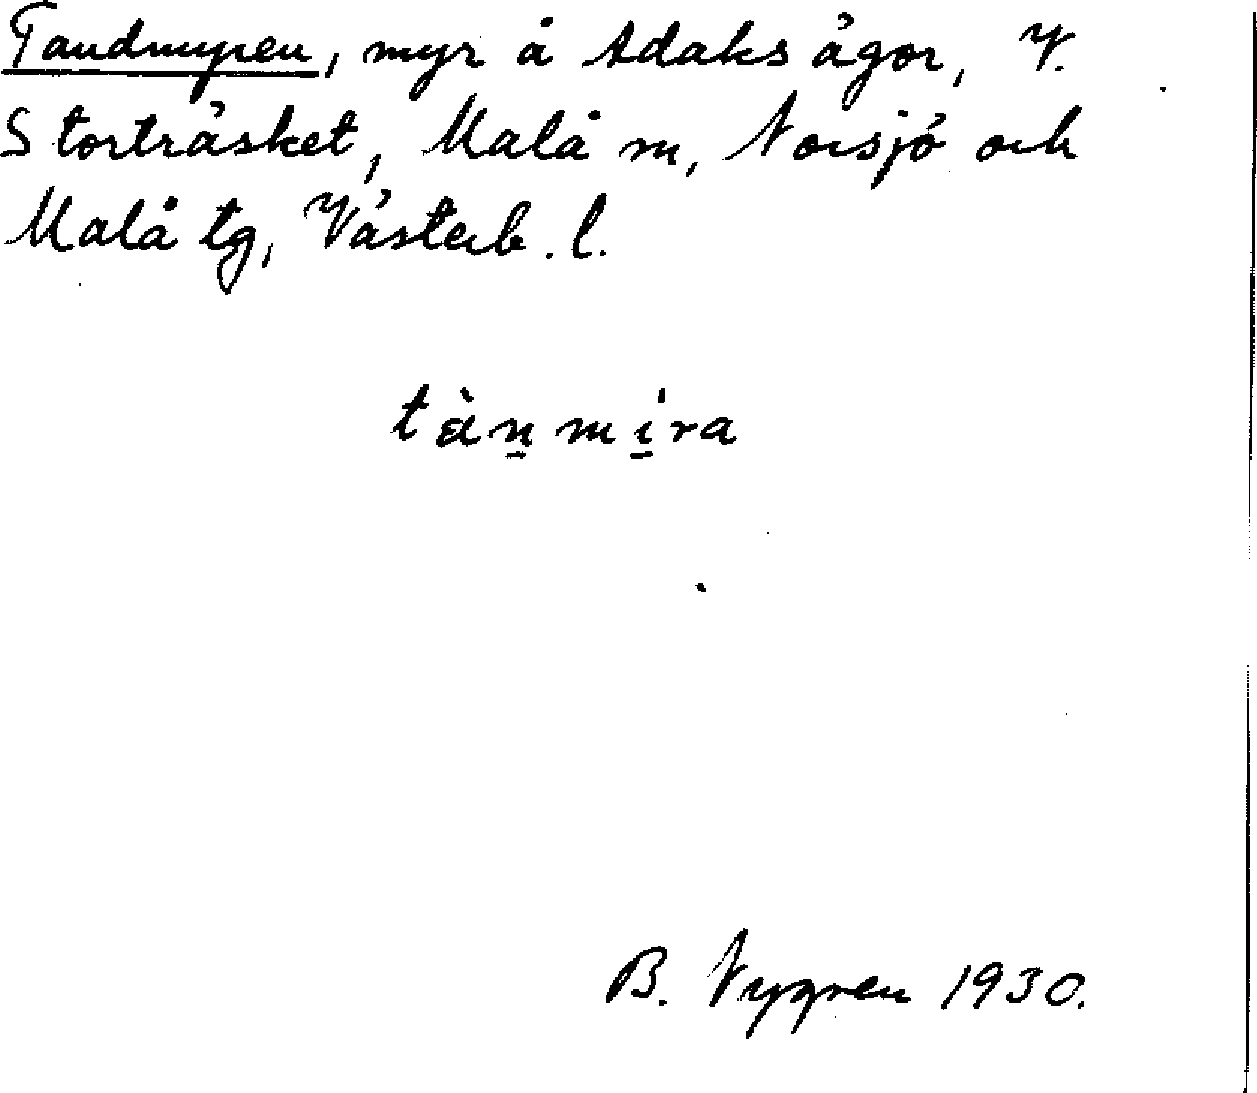 Tandmyren, myr å Adaks ägor, V.
Storträsket, Malå m, Norsjö och
Malå tg, Västerb. l.
tàn̲mi̲ra
B. Nygren 1930.